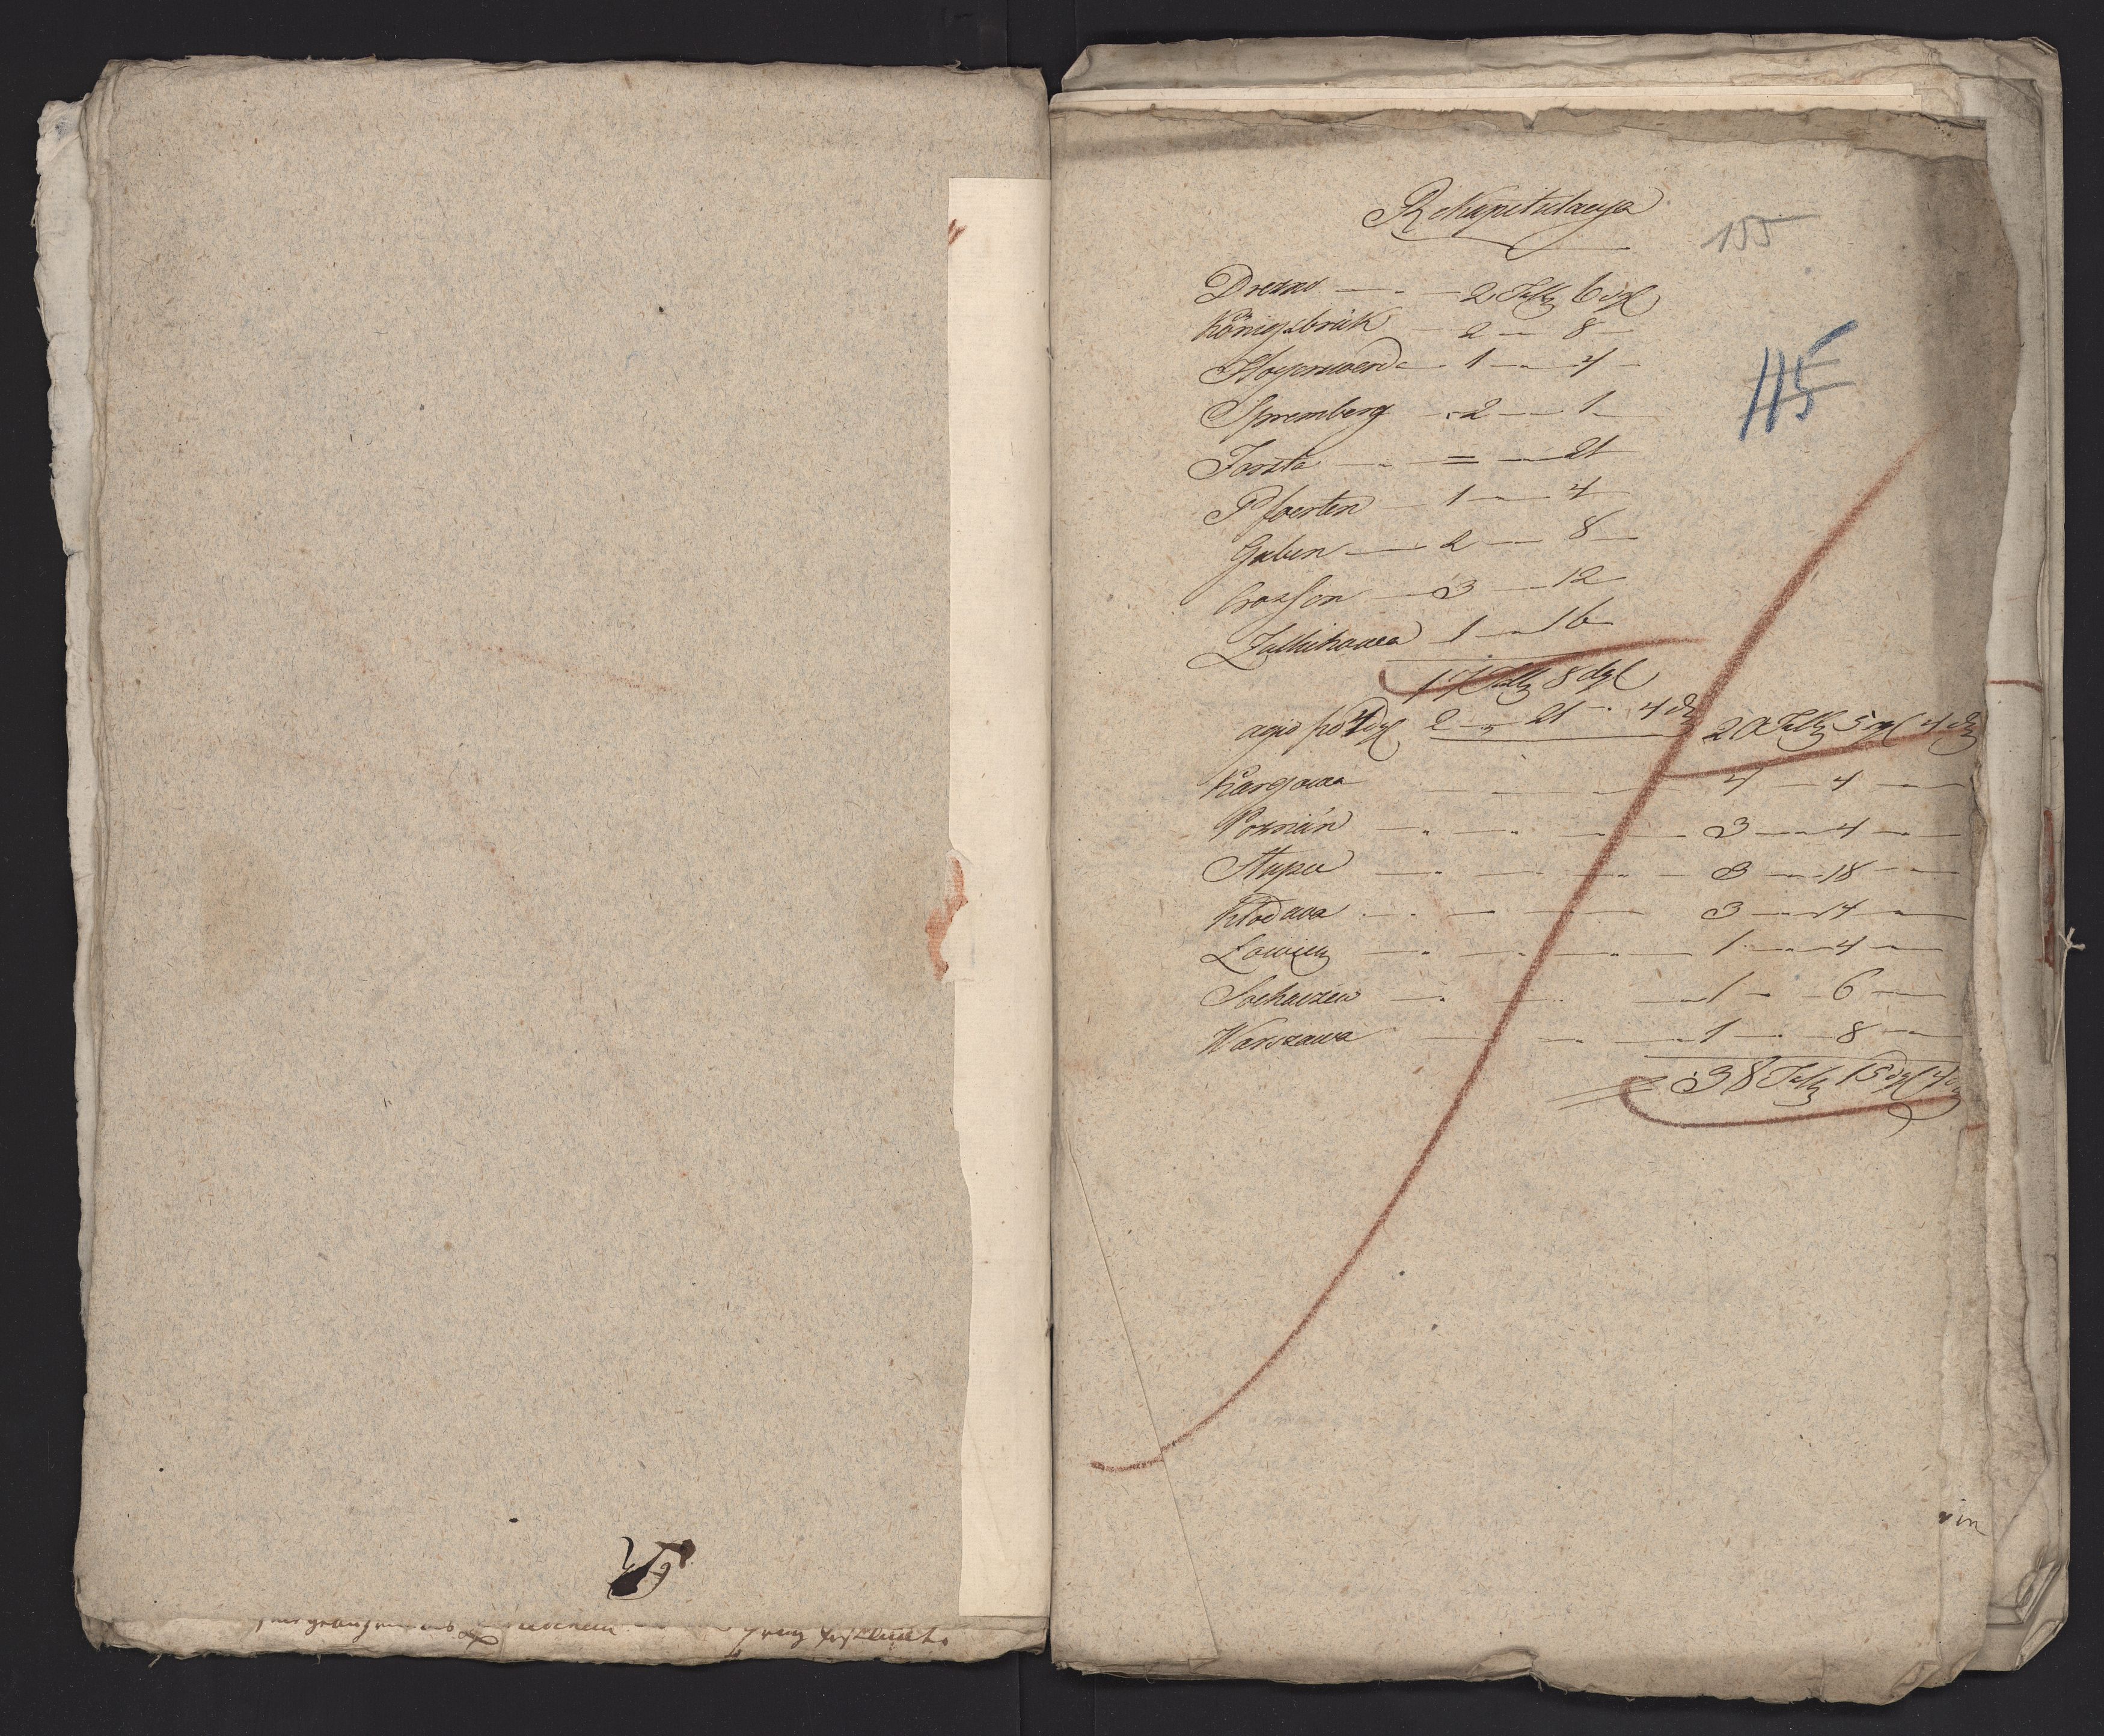 Rekapitulacya
155
Drezno — 2 Tall 6 dgl
Königsbrük — 2 — 8 —
115
Hoyerswerde — 1 — 4 —
Spremberg — 2 — 1 —
Forsta — = — 21
Pfoerten — 1 — 4 —
Guben — 2 — 8 —
Crossen — 3 — 12
Zullichawa 1 — 16
17 Tall 8 dgl
agio po 4 dgl 2 — 21 — 4 d 20 Tall 5 dgl 4 d
Kargowa — 4 — 4 —
Poznań — 3 — 4 —
Słupca — 3 — 18 —
Kłodawa — 3 — 14 —
Łowicz — 1 — 4 —
Sochaczew — 1 — 6 —
Warszawa — 1 — 8 —
38 Tall 15 dgl 4 d